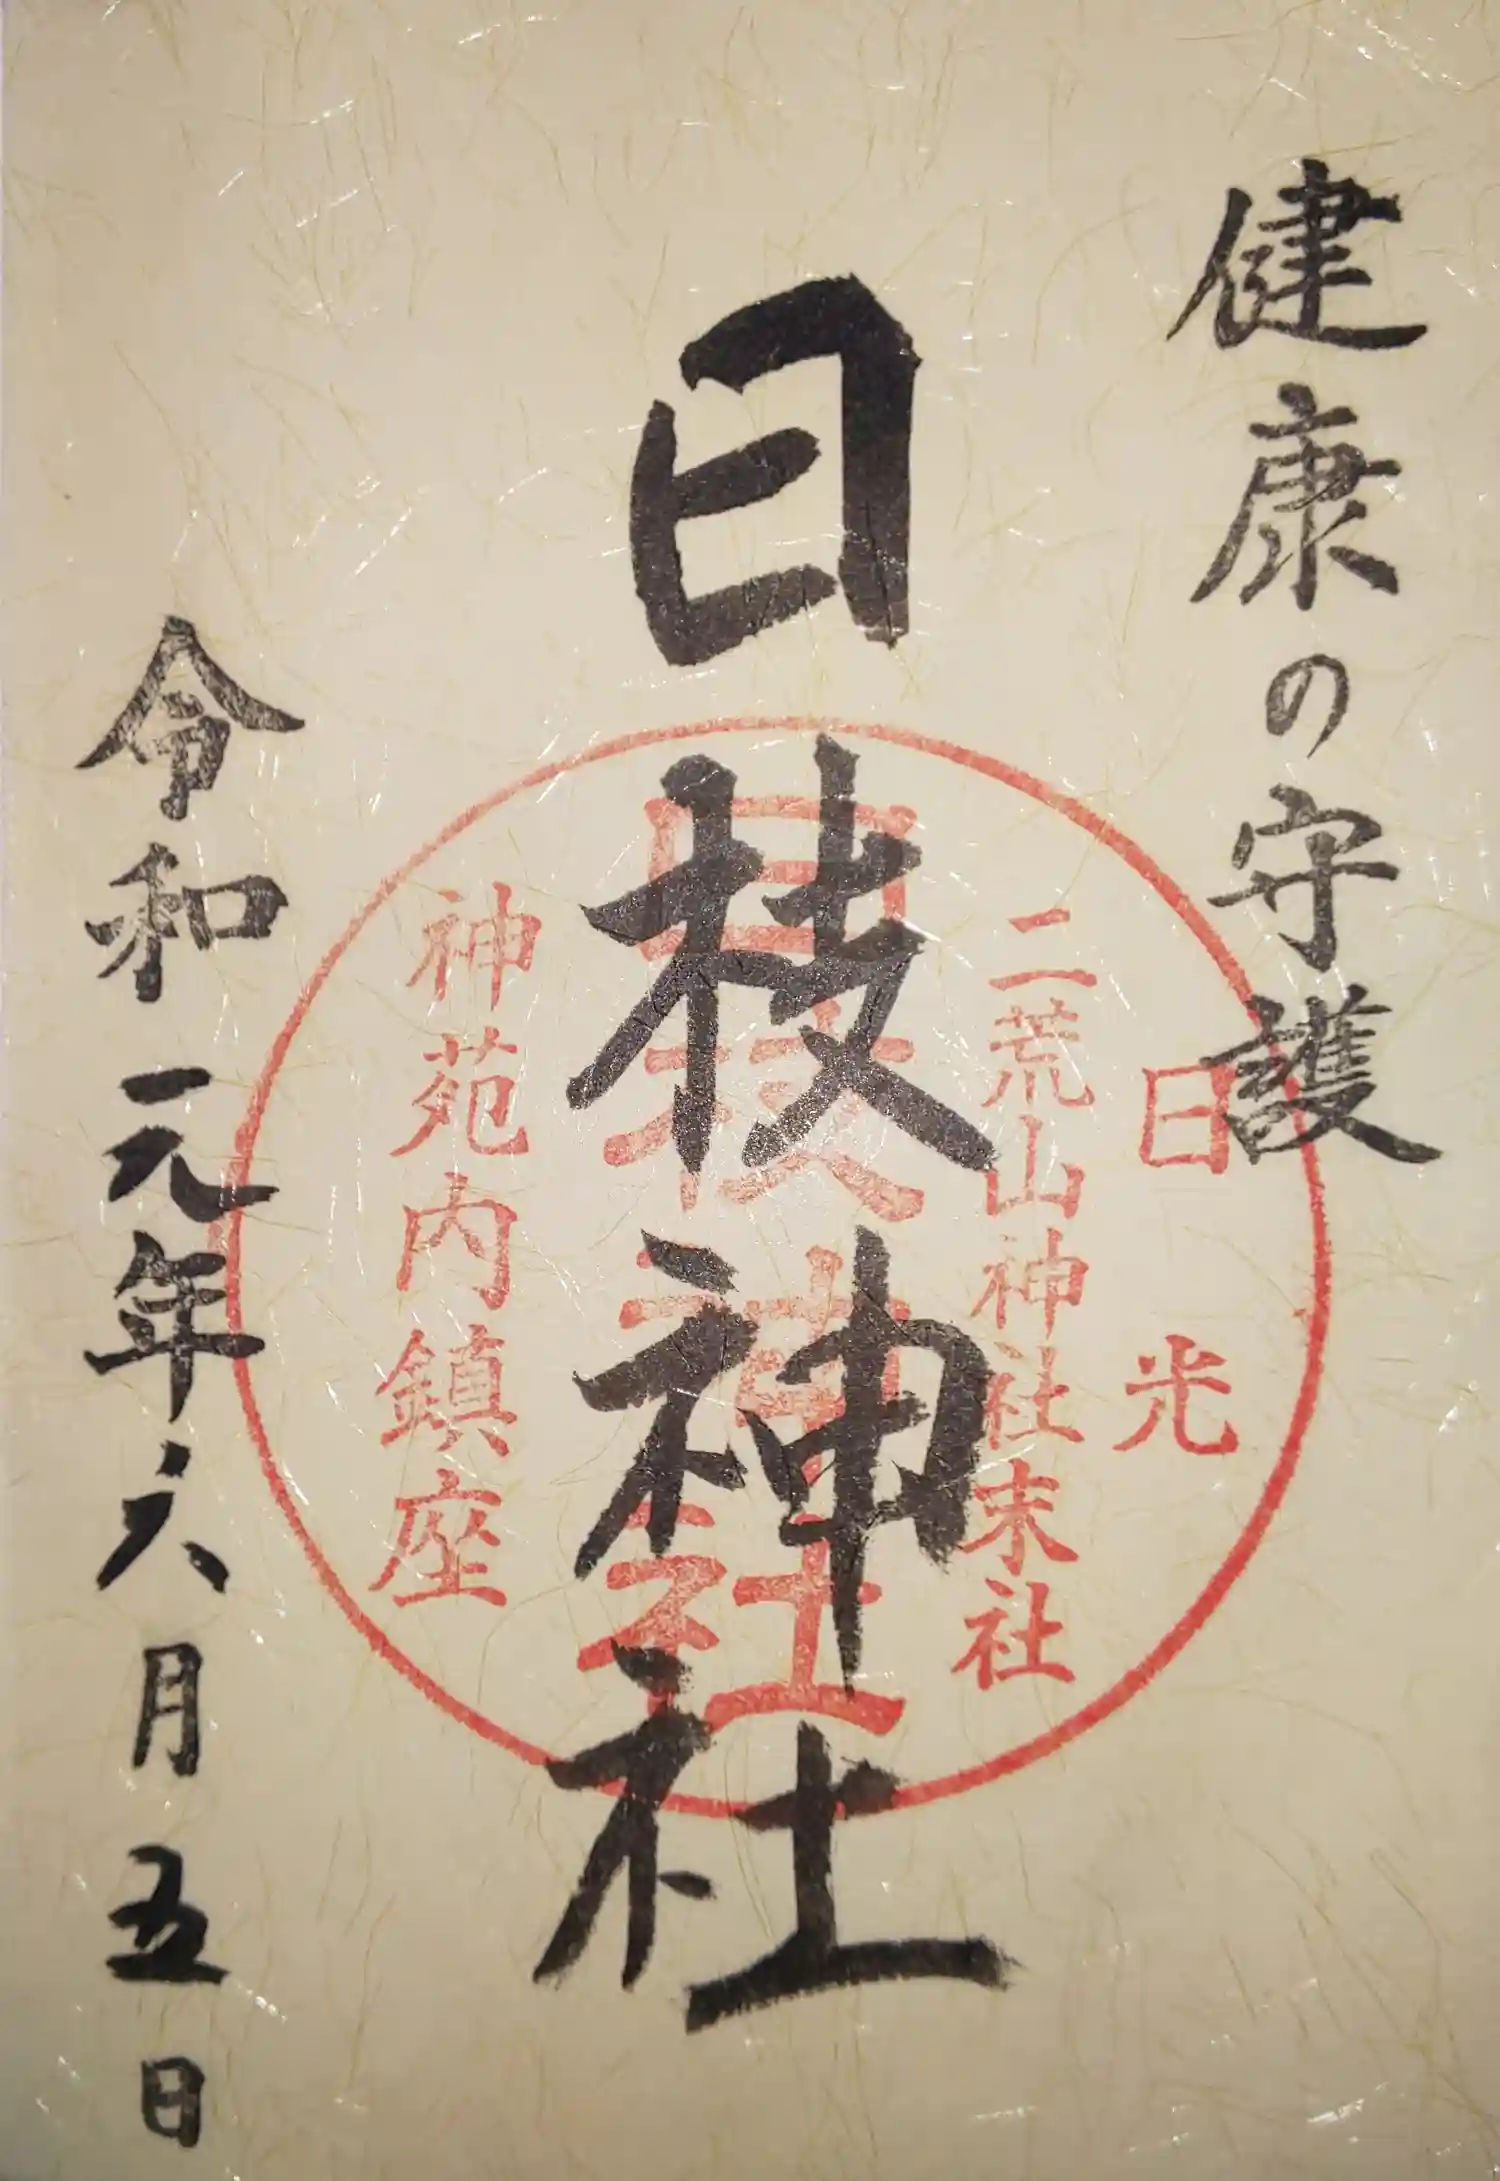 健康の守護
日光
二荒山神社末社
日枝神社
日枝神社
神苑内鎮座
令和元年六月五日